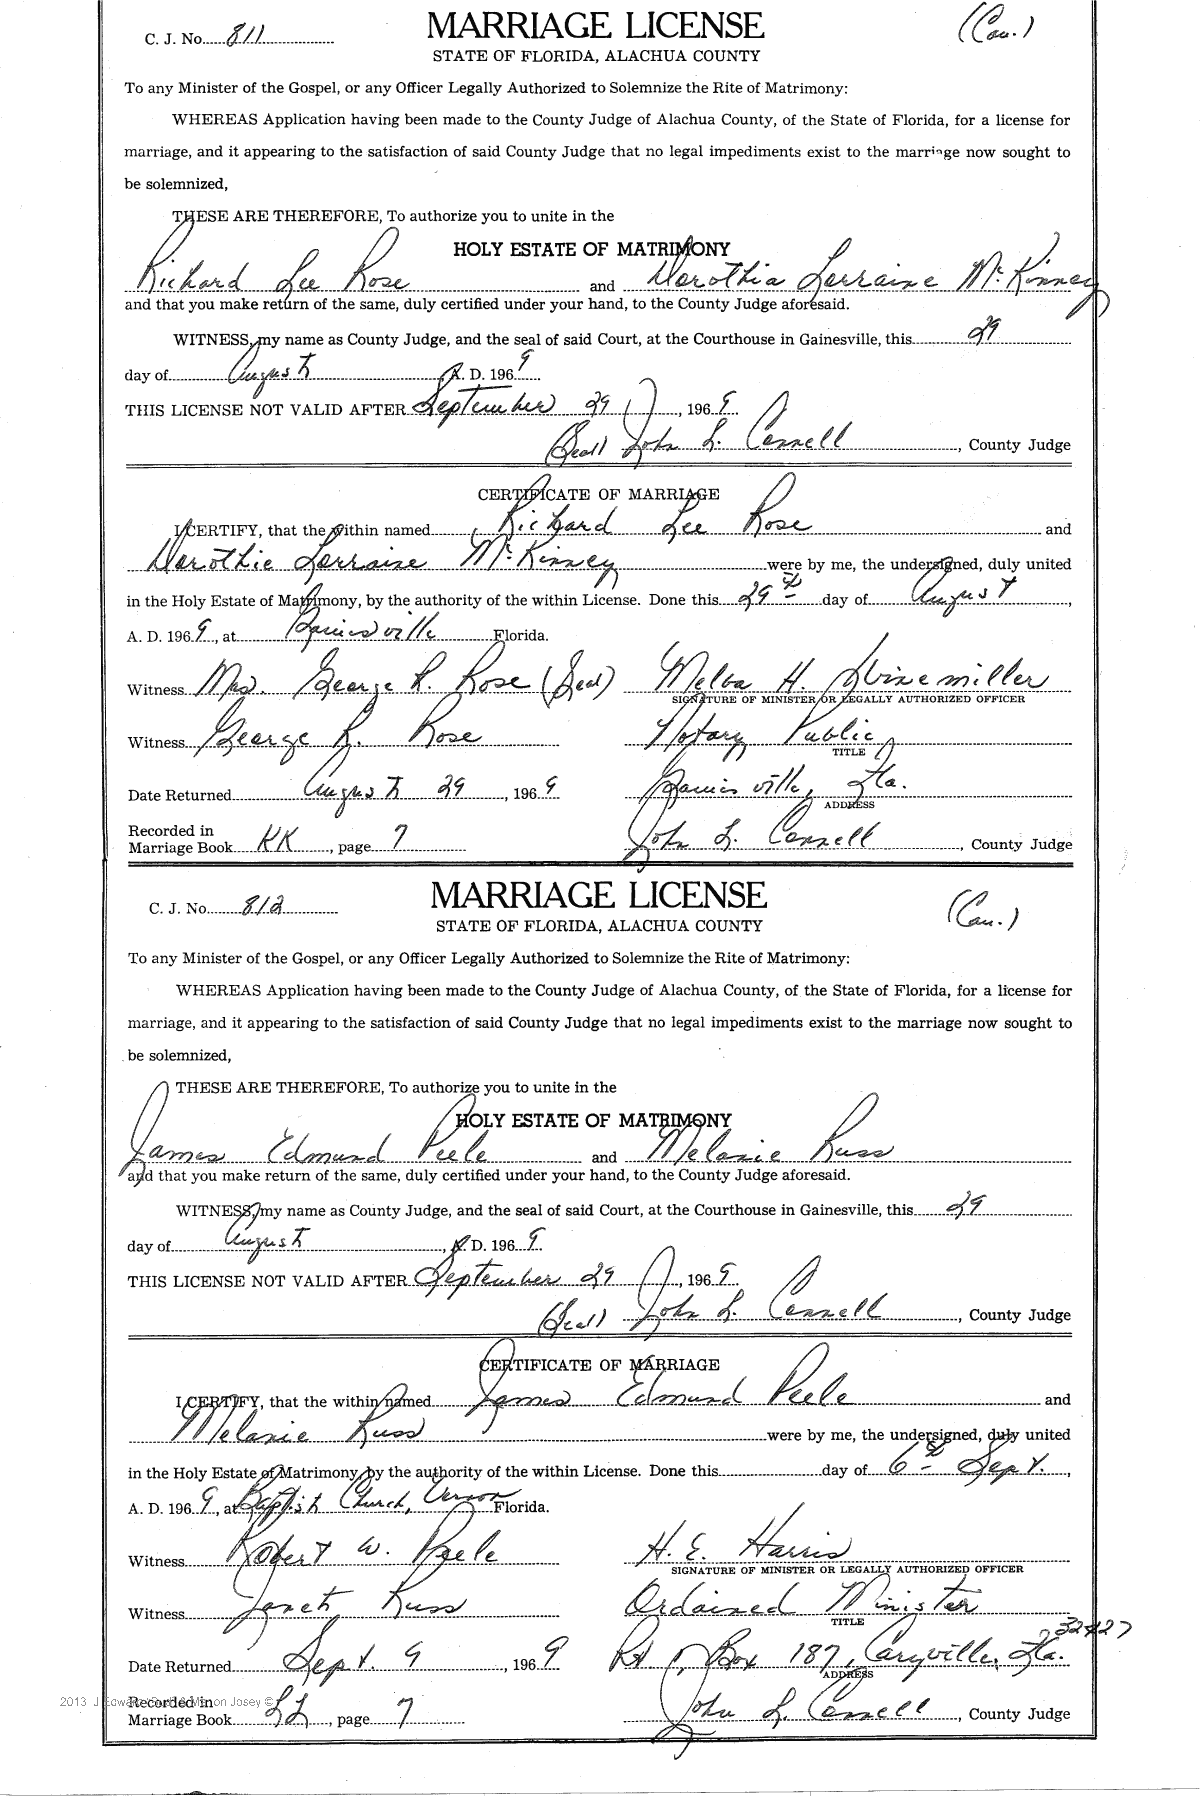 C. J. No. 811
MARRIAGE LICENSE
(Cau.)
STATE OF FLORIDA, ALACHUA COUNTY
To any Minister of the Gospel, or any Officer Legally Authorized to Solemnize the Rite of Matrimony:
WHEREAS Application having been made to the County Judge of Alachua County, of the State of Florida, for a license for
marriage, and it appearing to the satisfaction of said County Judge that no legal impediments exist to the marriage now sought to
be solemnized,
THESE ARE THEREFORE, To authorize you to unite in the
HOLY ESTATE OF MATRIMONY
Richard Lee Rose and Dorothia Lorraine McKinney
and that you make return of the same, duly certified under your hand, to the County Judge aforesaid.
WITNESS, my name as County Judge, and the seal of said Court, at the Courthouse in Gainesville, this 29
day of August A. D. 1969
THIS LICENSE NOT VALID AFTER September 29, 1969
(Seal) John L. Connell, County Judge
CERTIFICATE OF MARRIAGE
I CERTIFY, that the within named Richard Lee Rose and
Dorothie Lorraine McKinney were by me, the undersigned, duly united
in the Holy Estate of Matrimony, by the authority of the within License. Done this 29th day of August,
A. D. 1969, at Gainesville Florida.
Witness Mrs. George R. Rose (Seal) Melba H. Swinemiller
SIGNATURE OF MINISTER OR LEGALLY AUTHORIZED OFFICER
Witness George R. Rose Notary Public
TITLE
Date Returned August 29, 1969 Gainesville, Fla.
ADDRESS
Recorded in
Marriage Book KK, page 7 John L. Connell, County Judge
C. J. No. 812
MARRIAGE LICENSE
(Cau.)
STATE OF FLORIDA, ALACHUA COUNTY
To any Minister of the Gospel, or any Officer Legally Authorized to Solemnize the Rite of Matrimony:
WHEREAS Application having been made to the County Judge of Alachua County, of the State of Florida, for a license for
marriage, and it appearing to the satisfaction of said County Judge that no legal impediments exist to the marriage now sought to
be solemnized,
THESE ARE THEREFORE, To authorize you to unite in the
HOLY ESTATE OF MATRIMONY
James Edmund Peele and Melanie Russ
and that you make return of the same, duly certified under your hand, to the County Judge aforesaid.
WITNESS, my name as County Judge, and the seal of said Court, at the Courthouse in Gainesville, this 29
day of August, A. D. 1969
THIS LICENSE NOT VALID AFTER September 29, 1969
(Seal) John L. Connell, County Judge
CERTIFICATE OF MARRIAGE
I CERTIFY, that the within named James Edmund Peele and
Melanie Russ were by me, the undersigned, duly united
in the Holy Estate of Matrimony, by the authority of the within License. Done this day of 6th Sept.,
A. D. 1969, at Baptist Church, Vernon Florida.
Witness Robert W. Peele H. E. Harris
SIGNATURE OF MINISTER OR LEGALLY AUTHORIZED OFFICER
Witness Janet Russ Ordained Minister
TITLE
32427
Date Returned Sept. 9, 1969 Rt 1, Box 187, Caryville, Fla.
ADDRESS
Recorded in
Marriage Book LL, page 7 John L. Connell, County Judge